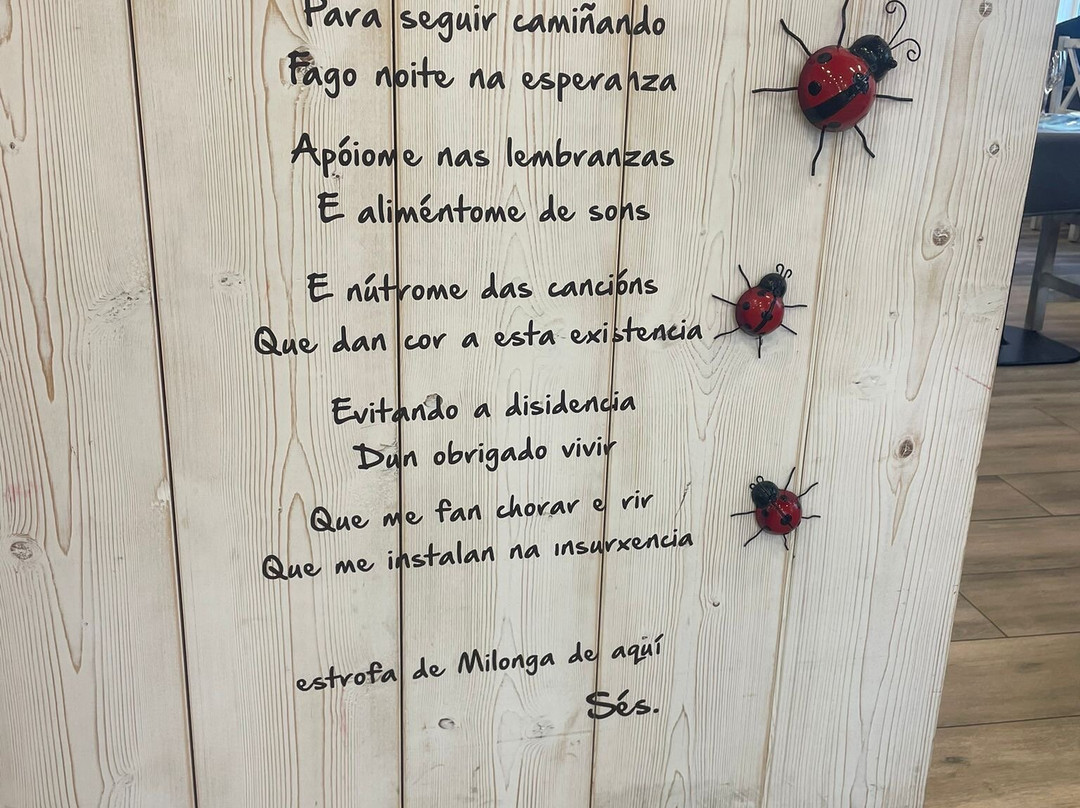 Para seguir camiñando
Fago noite na esperanza
Apóiome nas lembranzas
E aliméntome de sons
E nútrome das cancións
Que dan cor a esta existencia
Evitando a disidencia
Dun obrigado vivir
Que me fan chorar e rir
Que me instalan na insurxencia
estrofa de Milonga de aquí
Sés.